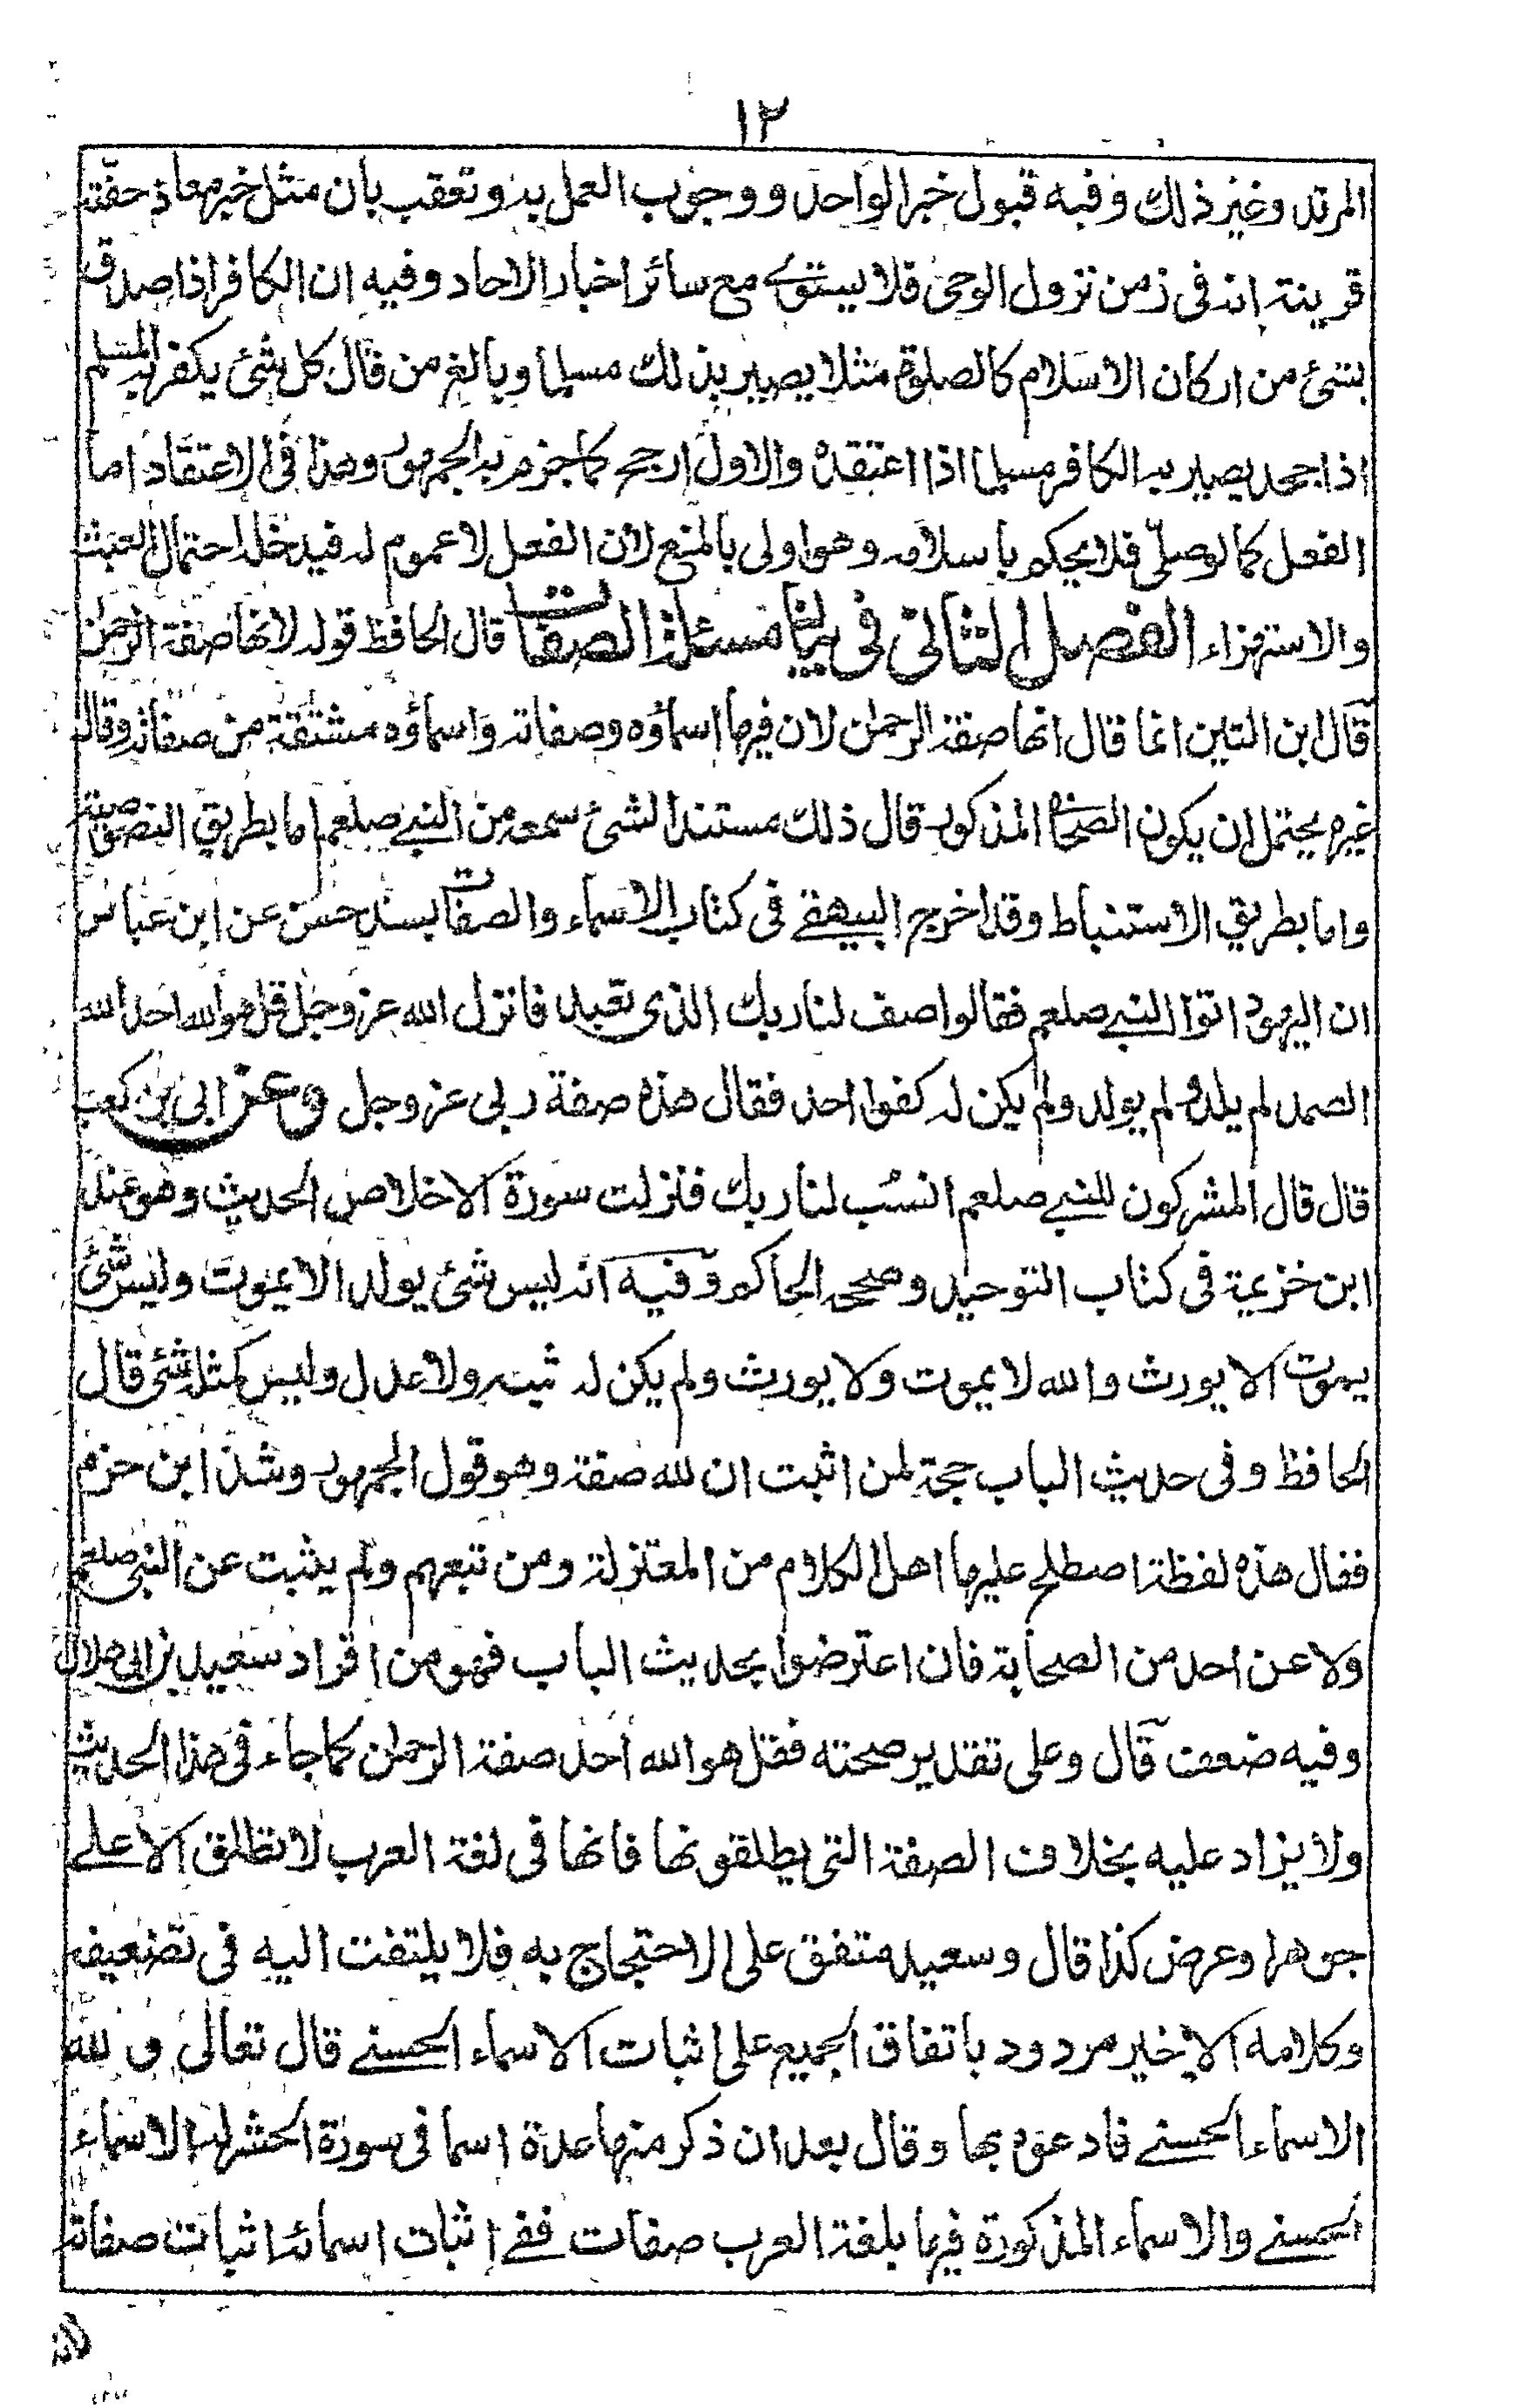 ١٢
المرتد وغير ذلك وفيه قبول خبر الواحد ووجوب العمل به وتعقب بان مثل خبر معاذ حفته
قرينة انه فى زمن نزول الوحى فلا يستوى مع سائر اخبار الاحاد وفيه ان الكافر اذا صدق
بشئ من اركان الاسلام كالصلوة مثلا يصير بذلك مسلما وبالغ من قال كل شئ يكفر به المسلم
اذا جحده يصير به الكافر مسلما اذا اعتقده والاول ارجح كما جزم به الجمهور وهذا فى الاعتقاد اما
الفعل كما لو صلى فلا يحكم باسلامه وهو اولى بالمنع لان الفعل لا عموم له فيدخله احتمال العبث
والاستهزاء الفصل الثانى فى بيان مسئلة الصفات قال الحافظ قوله لانها صفة الرحمن
قال ابن التين انما قال انها صفة الرحمن لان فيها اسماؤه وصفاته واسماؤه مشتقة من صفاته وقال
غيره يحتمل ان يكون الصحابى المذكور قال ذلك مستندا لشئ سمعه من النبى صلعم اما بطريق النصوصية
واما بطريق الاستنباط وقد اخرج البيهقى فى كتاب الاسماء والصفات بسند حسن عن ابن عباس
ان اليهود اتوا النبى صلعم فقالوا صف لنا ربك الذى تعبد فانزل الله عز وجل قل هو الله احد الله
الصمد لم يلد ولم يولد ولم يكن له كفوا احد فقال هذه صفة ربى عز وجل وعن ابى بن كعب
قال قال المشركون للنبى صلعم انسب لنا ربك فنزلت سورة الاخلاص الحديث وهو عند
ابن خزيمة فى كتاب التوحيد وصححه الحاكم وفيه انه ليس شئ يولد الا يموت وليس شئ
يموت الا يورث والله لا يموت ولا يورث ولم يكن له شبه ولا عدل وليس كمثله شئ قال
الحافظ وفى حديث الباب حجة لمن اثبت ان لله صفة وهو قول الجمهور وشذ ابن حزم
فقال هذه لفظة اصطلح عليها اهل الكلام من المعتزلة ومن تبعهم ولم يثبت عن النبى صلعم
ولا عن احد من الصحابة فان اعترضوا بحديث الباب فهو من افراد سعيد بن ابى هلال
وفيه ضعف قال وعلى تقدير صحته فقل هو الله احد صفة الرحمن كما جاء فى هذا الحديث
ولا يزاد عليه بخلاف الصفة التى يطلقونها فانها فى لغة العرب لا تطلق الا على
جوهر او عرض كذا قال وسعيد متفق على الاحتجاج به فلا يلتفت اليه فى تضعيفه
وكلامه الاخير مردود باتفاق الجميع على اثبات الاسماء الحسنى قال تعالى و لله
الاسماء الحسنى فادعوه بها وقال بعد ان ذكر منها عدة اسما فى سورة الحشر له الاسماء
الحسنى والاسماء المذكورة فيها بلغة العرب صفات ففى اثبات اسمائه اثبات صفاته